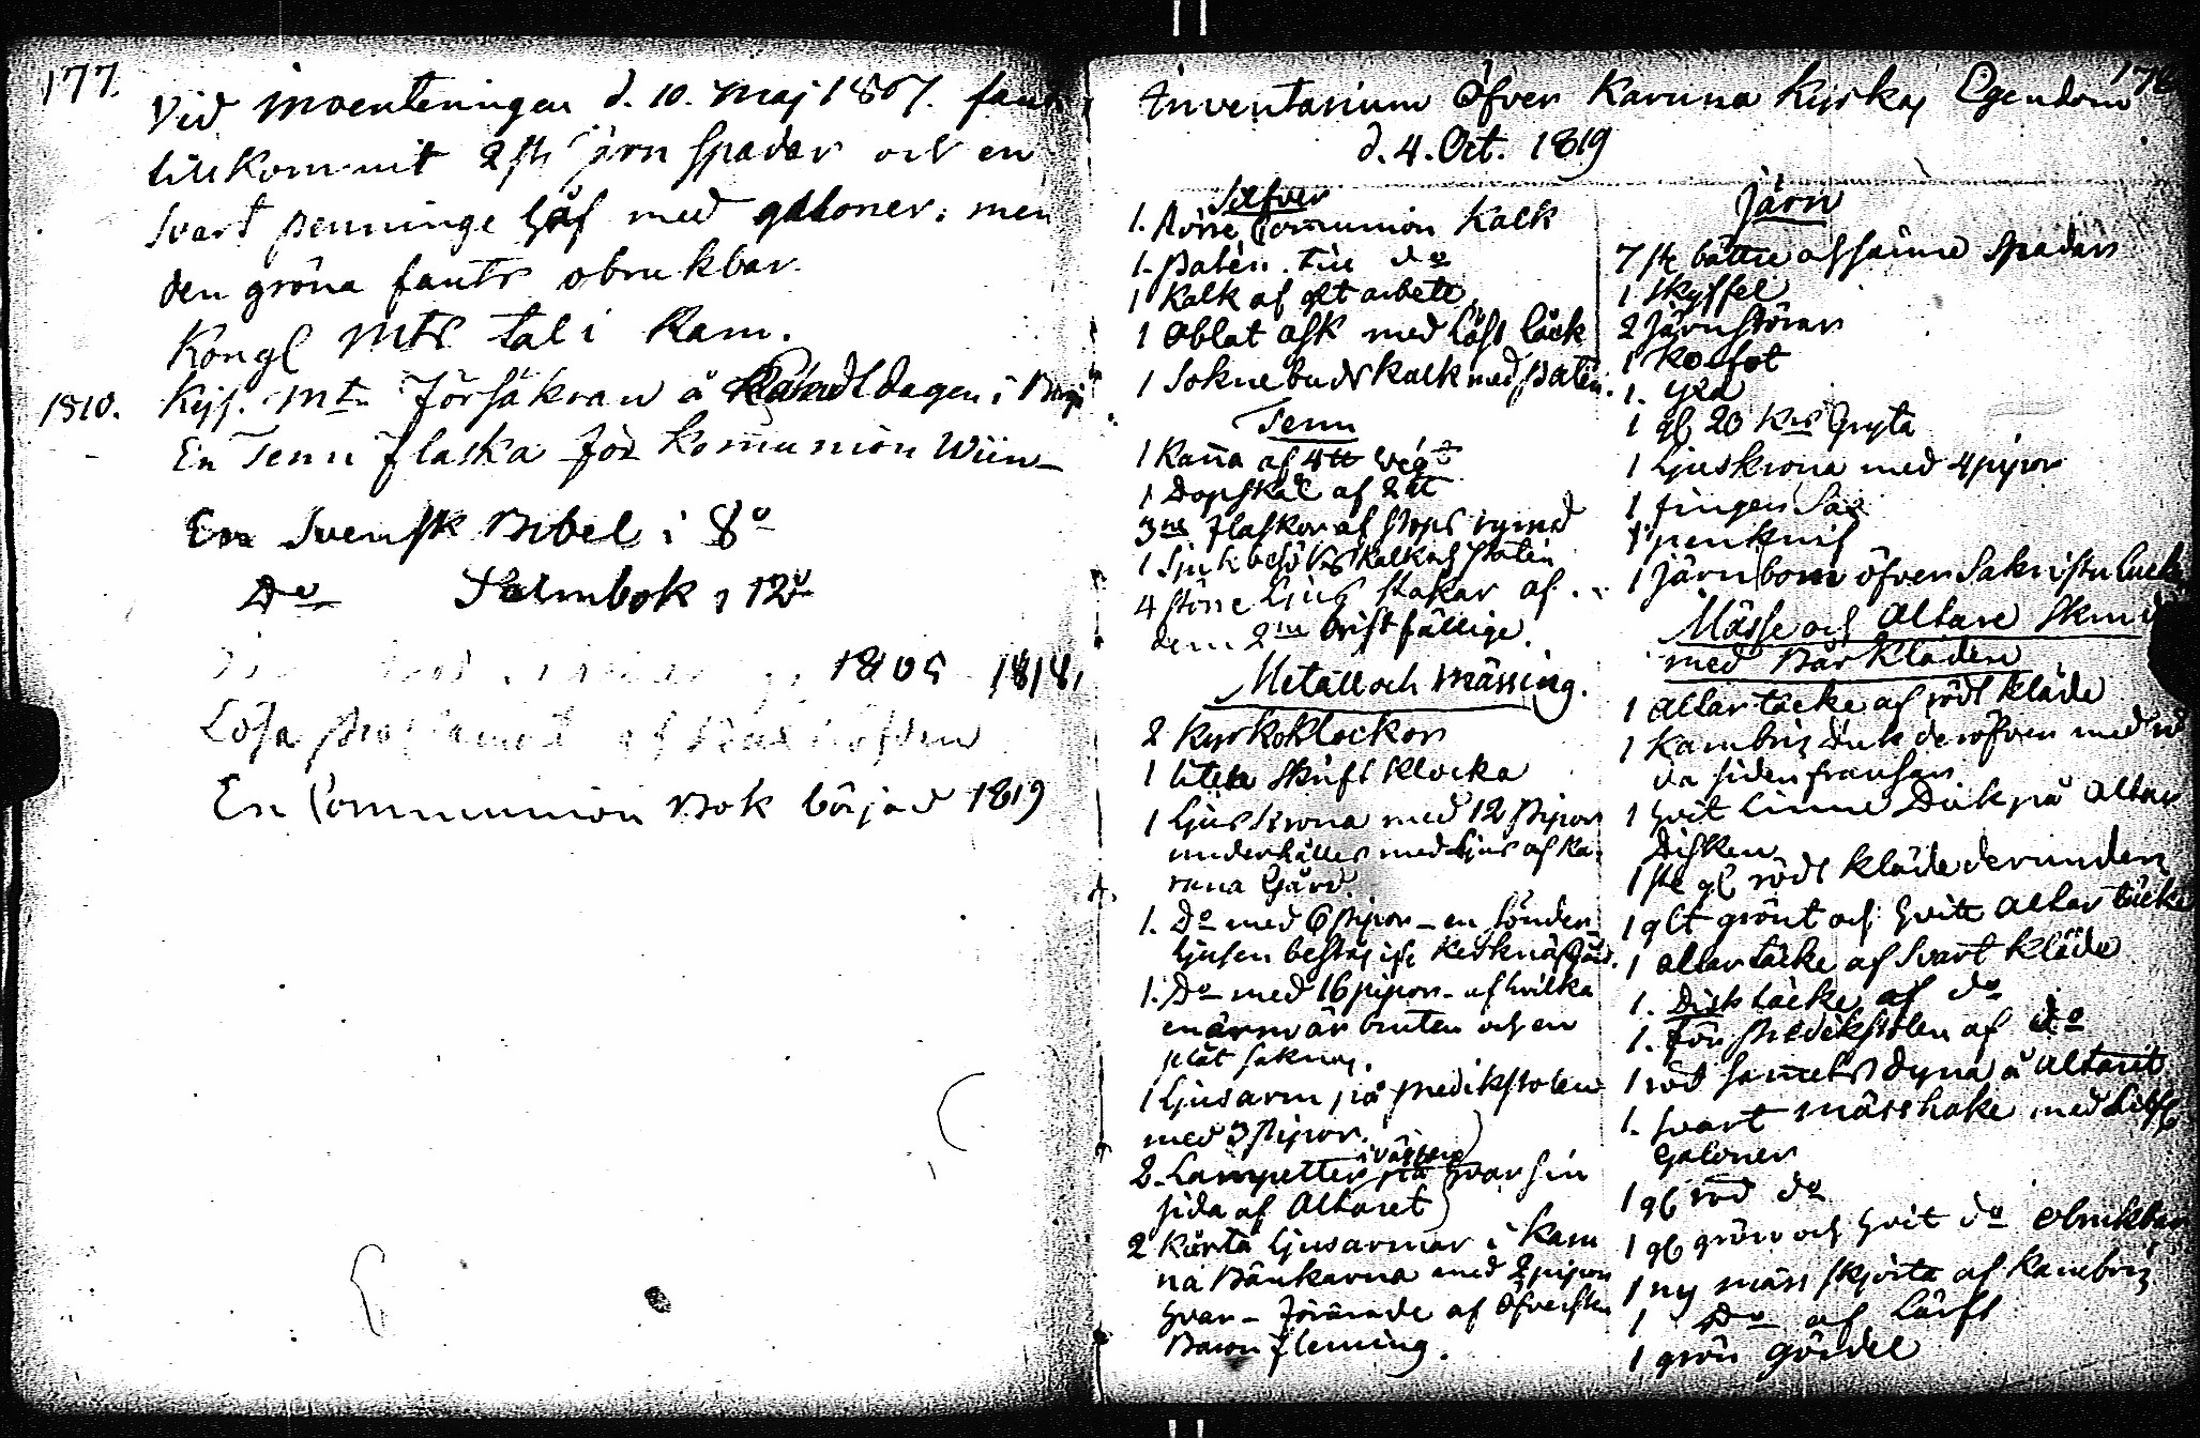 177.
Vid inventeringen d. 10. Maj 1807. fants
tillkommit 2 st. järn spadar och en
svart penninge håf med galloner; men
den gröna fants obrukbar.
Kongl Mts tal i Ram.
1810. Kejs. Mts Försäkran å Landtdagen i Borgå
En Tenn flaska för Communion Wiin
En Svensk Bibel i 8o
Do Psalmbok i 12o
1805 1818.
Lösa
En Communion Bok börjad 1819
Inventarium Öfver Karuna Kyrkas Egendom
d. 4. Oct. 1819
Silfver
1. större Communion Kalk
1. Patén till do
1 Kalk af glt arbete
1 Oblat ask med löst låck
1 Sokne buds kalk med Patén.
Tenn
1 Kanna af 4 ℔ vigt
1 Dopskål af 2 ℔
3ne Flaskor af stops rymd
1 Sjuk besöks kalk och Patén
4 större Ljus stakar af
dem 2ne bristfällige.
Metall och Mässing.
2 Kyrkoklockor
1 liten Skrift klocka
1 Ljuskrona med 12 Pipor
underhålles med Ljus af Ka-
runa Gård.
1. Do med 6 Pipor - en sönder
Ljusen bestås ifr. Kerknäs Gård.
1. Do med 16 pipor - af hvilka
en arm är bruten och en
plåt saknas.
1 Ljusarm på Predikstolen
med 3 Pipor.
2. Lampetter i väggen på hvar sin
sida af Altaret
2 Korta Ljusarmar i Karu
na Bänkarna med 2 pipor
hvar - förärade af Öfversten
Baron Fleming.
Järn
7 st. bättre och sämre Spadar
1 Skyffel
2 Järnstörar
1 Kofot
1. Yxa
1 gl. 20 Krs Gryta
1 Ljuskrona med 4 pipor
1 finger Sax
1 pennknif
1 Järnbom öfver Sakristie luckan
Mässe och Altare Skrud
med Bårkläden
1 Altartäcke af rödt kläde
1 Kambrix Duk deröfver med rö
da siden fransar.
1 hvit Linne Duk på Altar
Disken
1 st. gl. rödt kläde derunder
1 glt grönt och hvitt Altar täcke
1 altartäcke af Svart kläde
1. Disk täcke af do
1. för Predikstolen af do
1 röd sammets dyna å Altaret
1. svart mässhake med Silf.
Galoner
1 gl röd do
1 gl grön och hvit do obrukbar
1 ny mäss skjorta af Kambrix
1 Do af Lärft
1 grön gördel